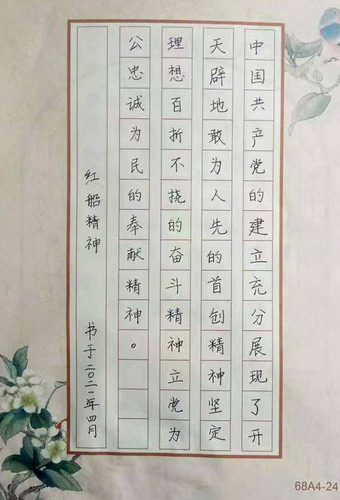 中国共产党的建立充分展现了开
天辟地敢为人先的首创精神坚定
理想百折不挠的奋斗精神立党为
公忠诚为民的奉献精神。
红船精神
书于二〇二一年四月
68A4-24